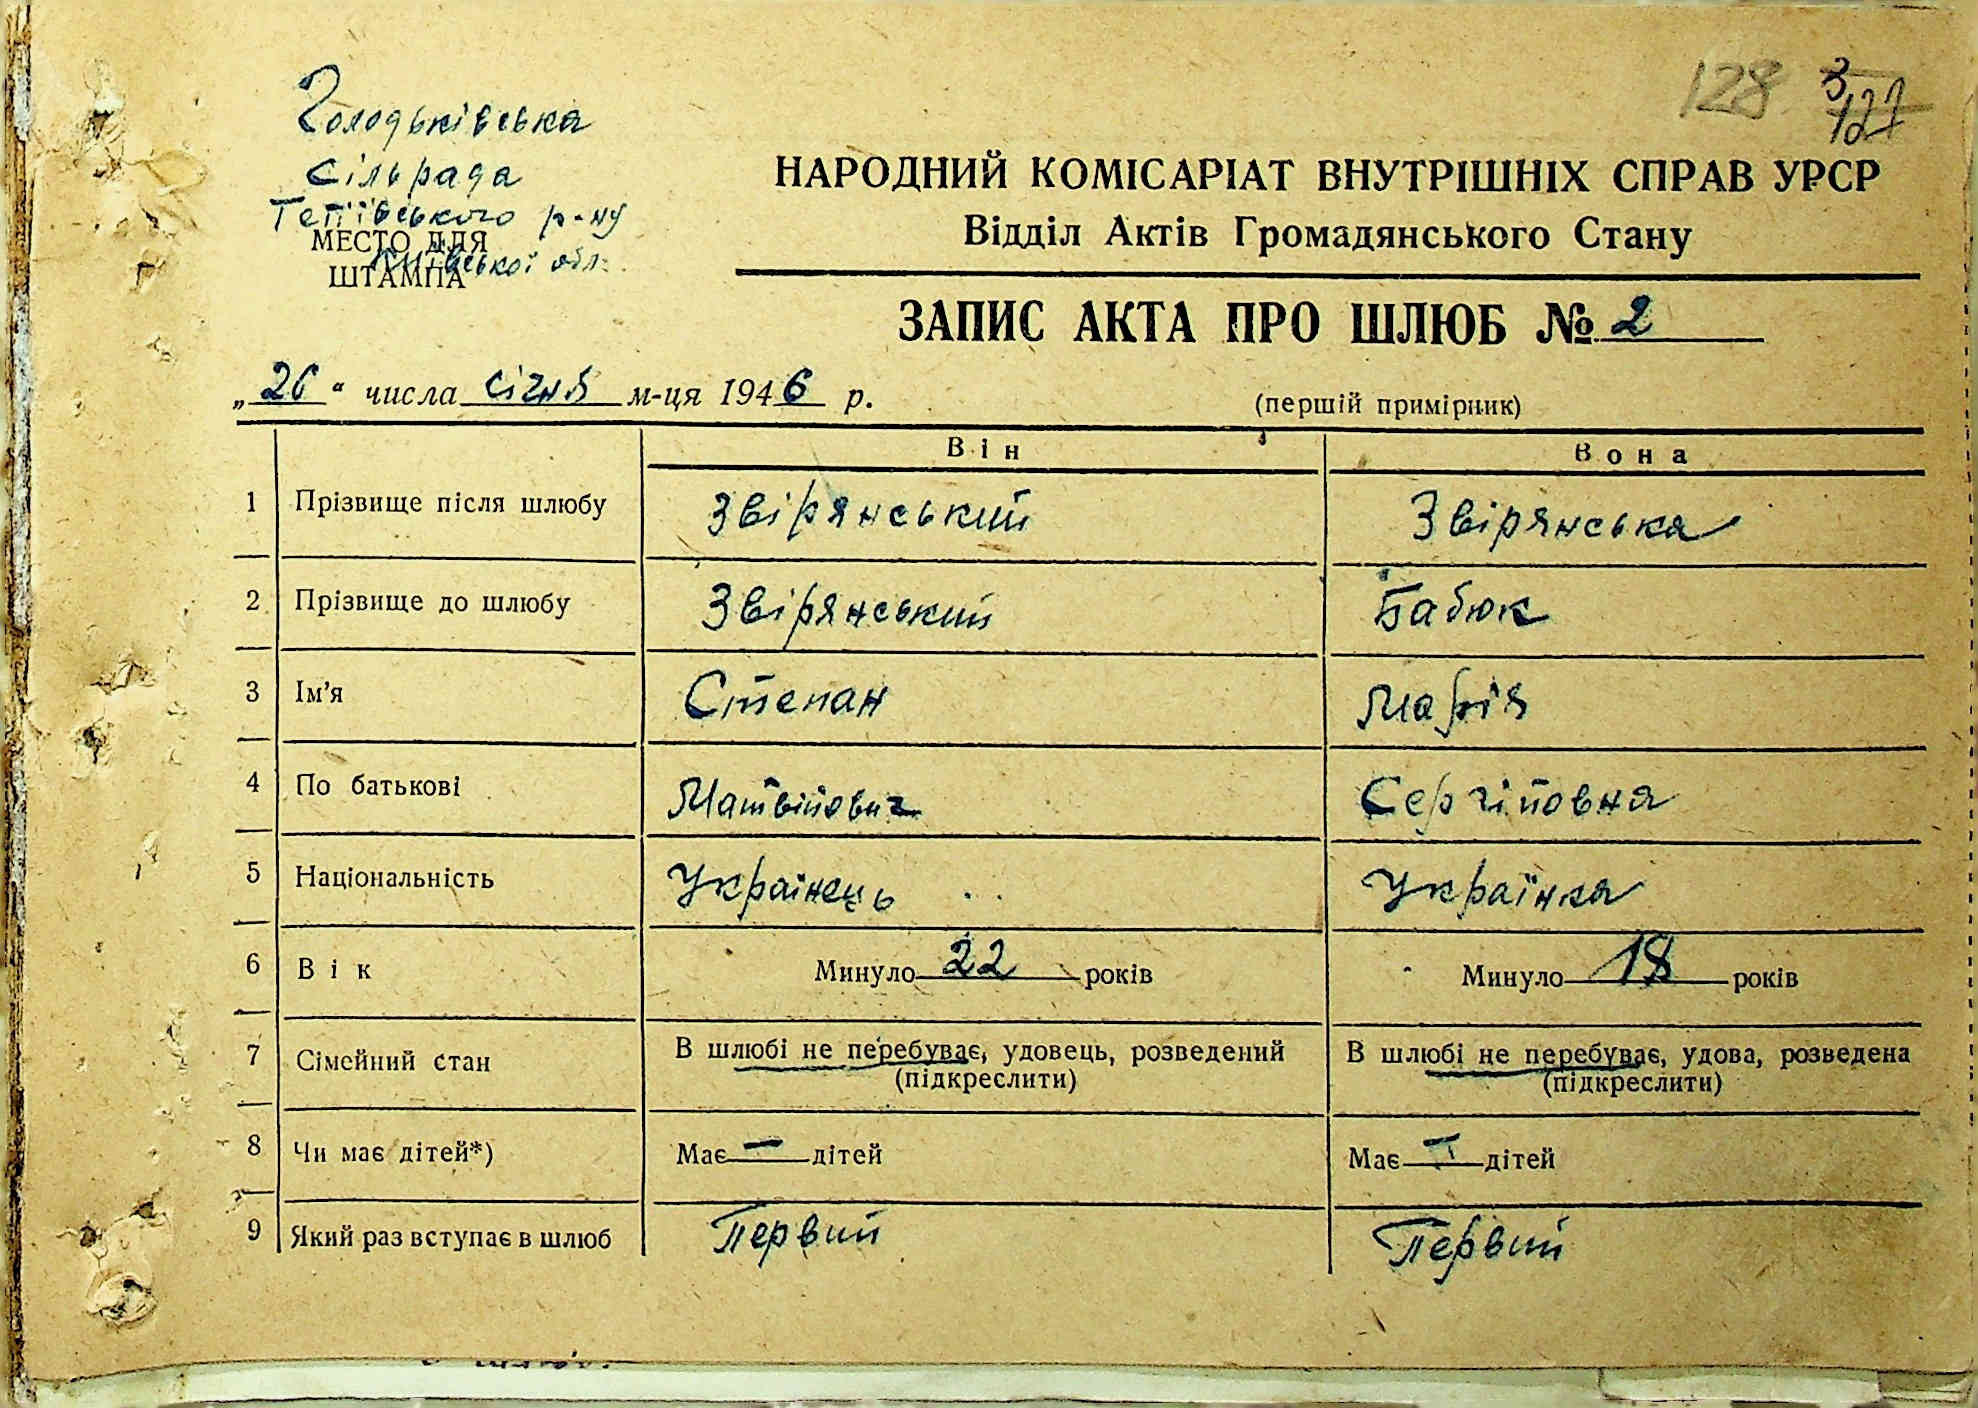 128 3
127
Голодьківська
сільрада
Тепївського р-ну
МЕСТО ДЛЯ
Київської обл.
ШТАМПА
НАРОДНИЙ КОМІСАРІАТ ВНУТРІШНІХ СПРАВ УРСР
Відділ Актів Громадянського Стану
ЗАПИС АКТА ПРО ШЛЮБ № 2
„26“ числа січня м-ця 1946 р.
(першій примірник)
Він Вона
1 Прізвище після шлюбу Звірянський Звірянська
2 Прізвище до шлюбу Звірянський Бабюк
3 Ім’я Степан Марія
4 По батькові Матвійович Сергійовна
5 Національність Українець Українка
6 Вік Минуло 22 років Минуло 18 років
7 Сімейний стан В шлюбі не перебуває, удовець, розведений В шлюбі не перебуває, удова, розведена
(підкреслити) (підкреслити)
8 Чи має дітей*) Має — дітей Має — дітей
9 Який раз вступає в шлюб Первий Первий